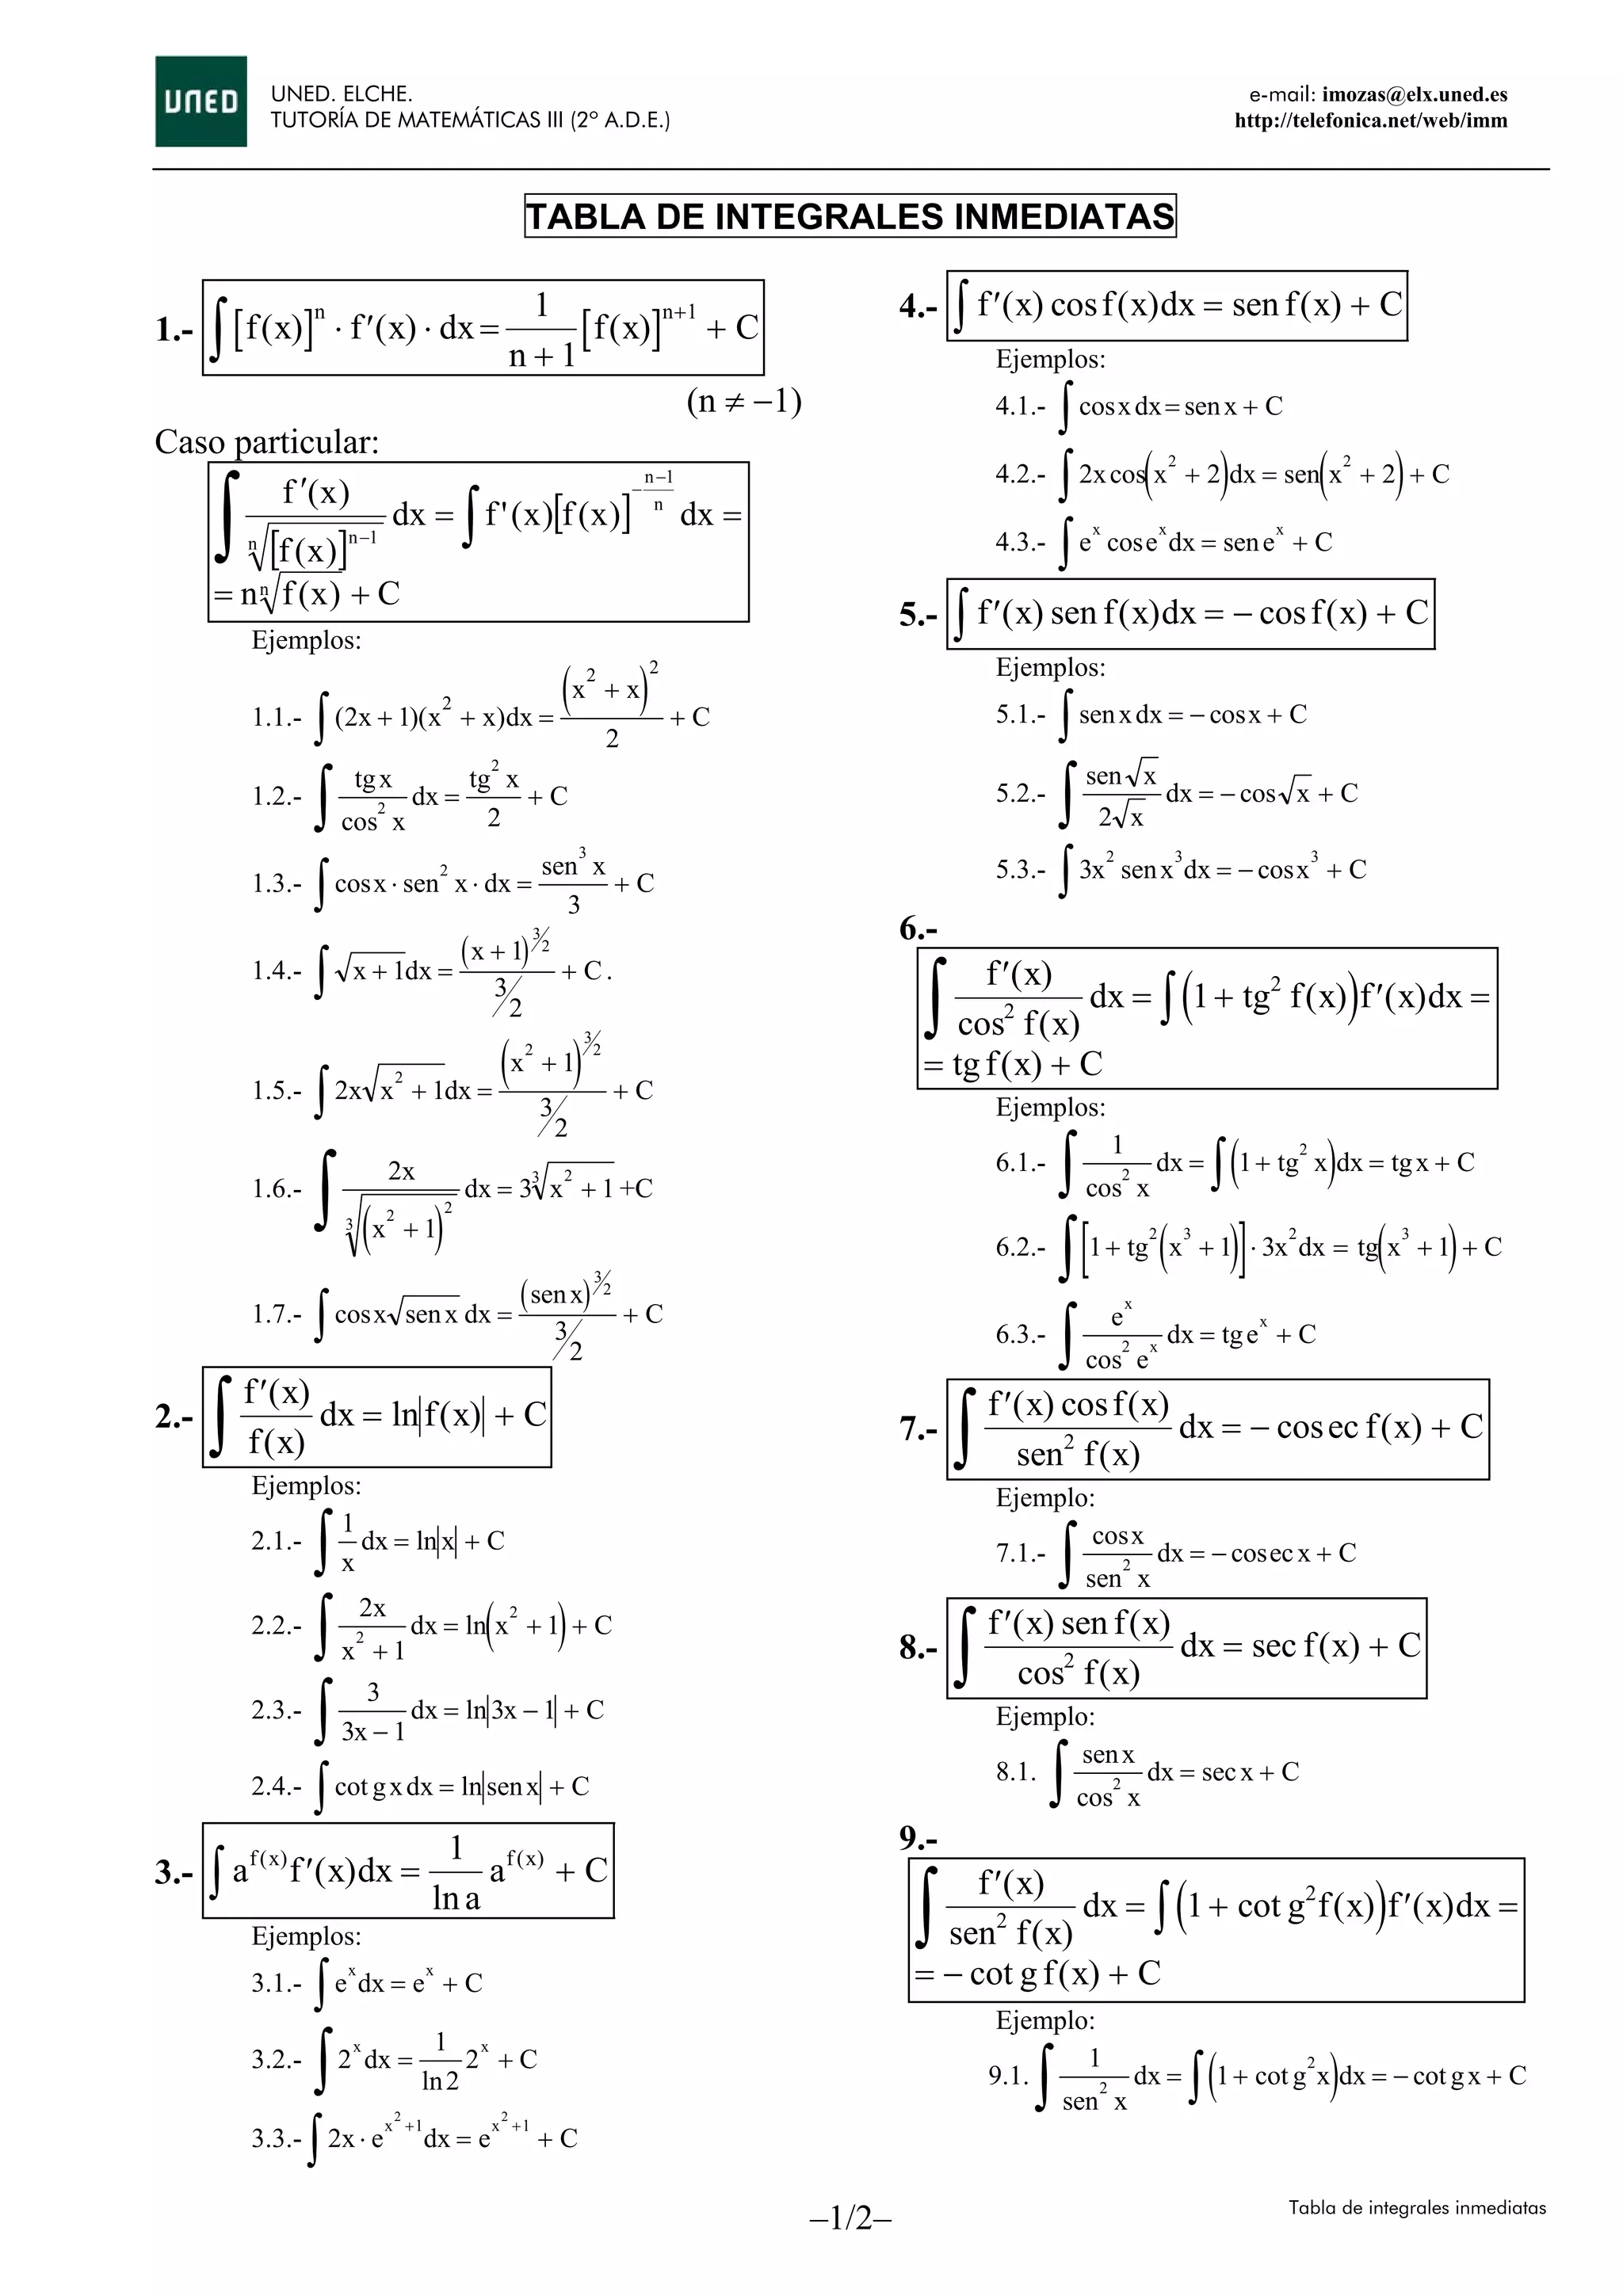 UNED
UNED. ELCHE.
TUTORÍA DE MATEMÁTICAS III (2º A.D.E.)
e-mail: imozas@elx.uned.es
http://telefonica.net/web/imm
TABLA DE INTEGRALES INMEDIATAS
1.- ∫ [f(x)]ⁿ · f′(x) · dx = 1/(n + 1) [f(x)]ⁿ⁺¹ + C
(n ≠ −1)
Caso particular:
∫ f′(x) / ⁿ√([f(x)]ⁿ⁻¹) dx = ∫ f'(x)[f(x)]^(−(n−1)/n) dx =
= n ⁿ√(f(x)) + C
Ejemplos:
1.1.- ∫ (2x + 1)(x² + x)dx = (x² + x)²/2 + C
1.2.- ∫ tg x / cos² x dx = tg² x / 2 + C
1.3.- ∫ cos x · sen² x · dx = sen³ x / 3 + C
1.4.- ∫ √(x + 1)dx = (x + 1)^(3/2) / (3/2) + C .
1.5.- ∫ 2x √(x² + 1)dx = (x² + 1)^(3/2) / (3/2) + C
1.6.- ∫ 2x / ³√((x² + 1)²) dx = 3 ³√(x² + 1) +C
1.7.- ∫ cos x √(sen x) dx = (sen x)^(3/2) / (3/2) + C
2.- ∫ f′(x)/f(x) dx = ln|f(x)| + C
Ejemplos:
2.1.- ∫ 1/x dx = ln|x| + C
2.2.- ∫ 2x/(x² + 1) dx = ln(x² + 1) + C
2.3.- ∫ 3/(3x − 1) dx = ln|3x − 1| + C
2.4.- ∫ cot g x dx = ln|sen x| + C
3.- ∫ a^(f(x)) f′(x)dx = 1/ln a a^(f(x)) + C
Ejemplos:
3.1.- ∫ eˣ dx = eˣ + C
3.2.- ∫ 2ˣ dx = 1/ln 2 2ˣ + C
3.3.- ∫ 2x · e^(x²+1) dx = e^(x²+1) + C
4.- ∫ f′(x) cos f(x)dx = sen f(x) + C
Ejemplos:
4.1.- ∫ cos x dx = sen x + C
4.2.- ∫ 2x cos(x² + 2)dx = sen(x² + 2) + C
4.3.- ∫ eˣ cos eˣ dx = sen eˣ + C
5.- ∫ f′(x) sen f(x)dx = − cos f(x) + C
Ejemplos:
5.1.- ∫ sen x dx = − cos x + C
5.2.- ∫ sen √x / 2√x dx = − cos √x + C
5.3.- ∫ 3x² sen x³ dx = − cos x³ + C
6.-
∫ f′(x) / cos² f(x) dx = ∫ (1 + tg² f(x)) f′(x)dx =
= tg f(x) + C
Ejemplos:
6.1.- ∫ 1/cos² x dx = ∫ (1 + tg² x)dx = tg x + C
6.2.- ∫ [1 + tg²(x³ + 1)] · 3x² dx = tg(x³ + 1) + C
6.3.- ∫ eˣ / cos² eˣ dx = tg eˣ + C
7.- ∫ f′(x) cos f(x) / sen² f(x) dx = − cos ec f(x) + C
Ejemplo:
7.1.- ∫ cos x / sen² x dx = − cos ec x + C
8.- ∫ f′(x) sen f(x) / cos² f(x) dx = sec f(x) + C
Ejemplo:
8.1. ∫ sen x / cos² x dx = sec x + C
9.-
∫ f′(x) / sen² f(x) dx = ∫ (1 + cot g² f(x)) f′(x)dx =
= − cot g f(x) + C
Ejemplo:
9.1. ∫ 1/sen² x dx = ∫ (1 + cot g² x)dx = − cot g x + C
–1/2–
Tabla de integrales inmediatas